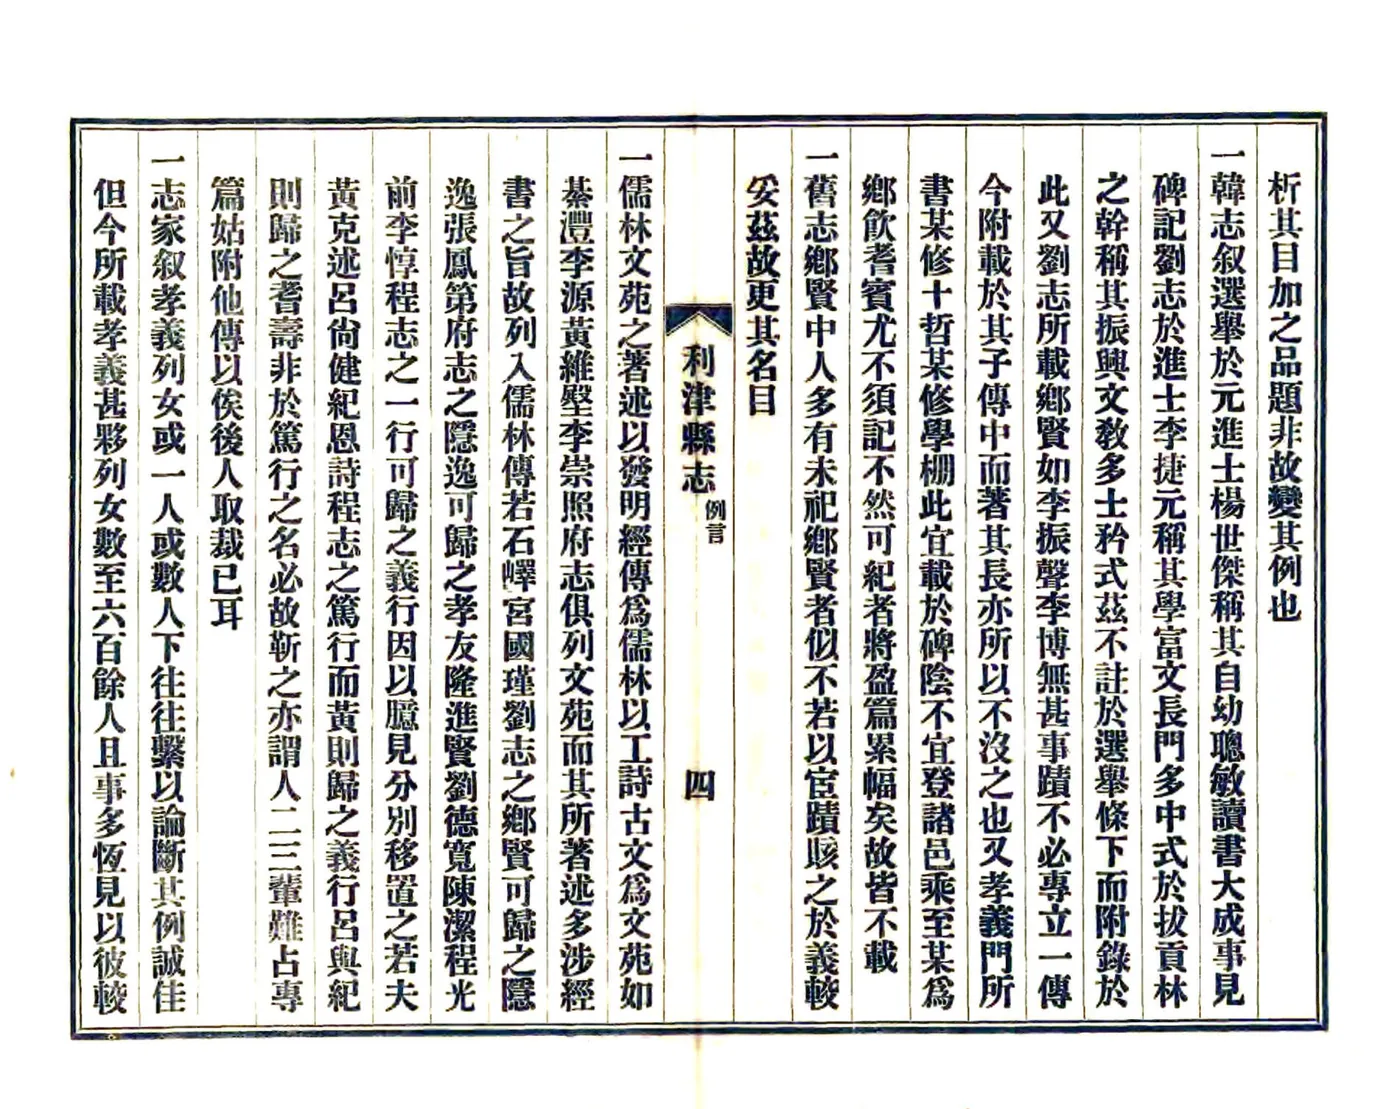 析其目加之品題非故變其例也
一韓志叙選舉於元進士楊世傑稱其自幼聰敏讀書大成事見
碑記劉志於進士李捷元稱其學富文長門多中式於拔貢林
之幹稱其振興文敎多士矜式茲不註於選舉條下而附錄於
此又劉志所載鄉賢如李振聲李博無甚事蹟不必專立一傳
今附載於其子傳中而著其長亦所以不沒之也又孝義門所
書某修十哲某修學棚此宜載於碑陰不宜登諸邑乘至某爲
鄉飮耆賓尤不須記不然可紀者將盈篇累幅矣故皆不載
一舊志鄉賢中人多有未祀鄉賢者似不若以宦蹟賅之於義較
妥茲故更其名目
利津縣志 例言 四
一儒林文苑之著述以發明經傳爲儒林以工詩古文爲文苑如
綦灃李源黃維壂李崇照府志俱列文苑而其所著述多涉經
書之旨故列入儒林傳若石嶧宮國瑾劉志之鄉賢可歸之隱
逸張鳳第府志之隱逸可歸之孝友隆進賢劉德寬陳潔程光
前李惇程志之一行可歸之義行因以臆見分別移置之若夫
黃克述呂尙健紀恩詩程志之篤行而黃則歸之義行呂與紀
則歸之耆壽非於篤行之名必故靳之亦謂人二三輩難占專
篇姑附他傳以俟後人取裁已耳
一志家叙孝義列女或一人或數人下往往繫以論斷其例誠佳
但今所載孝義甚夥列女數至六百餘人且事多恆見以彼較